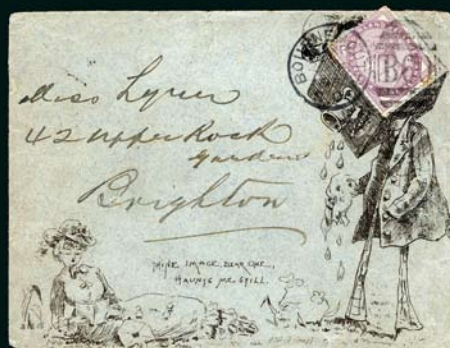 Miss Lyner
42 Upper Rock
Gardens
Brighton
THINE IMAGE, DEAR ONE,
HAUNTS ME STILL.